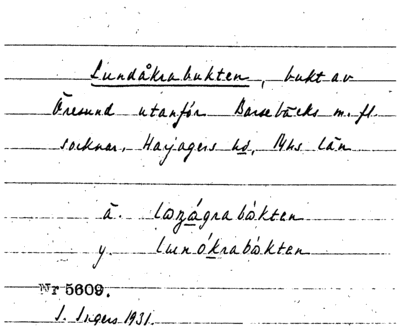 Lundåkrabukten, bukt av
Öresund utanför Barsebäcks m. fl.
socknar, Harjagers hd, Mhs län
ä. lozágrabòkten
y. lunókrabòkten
Nr 5609.
I. Ingers 1931.